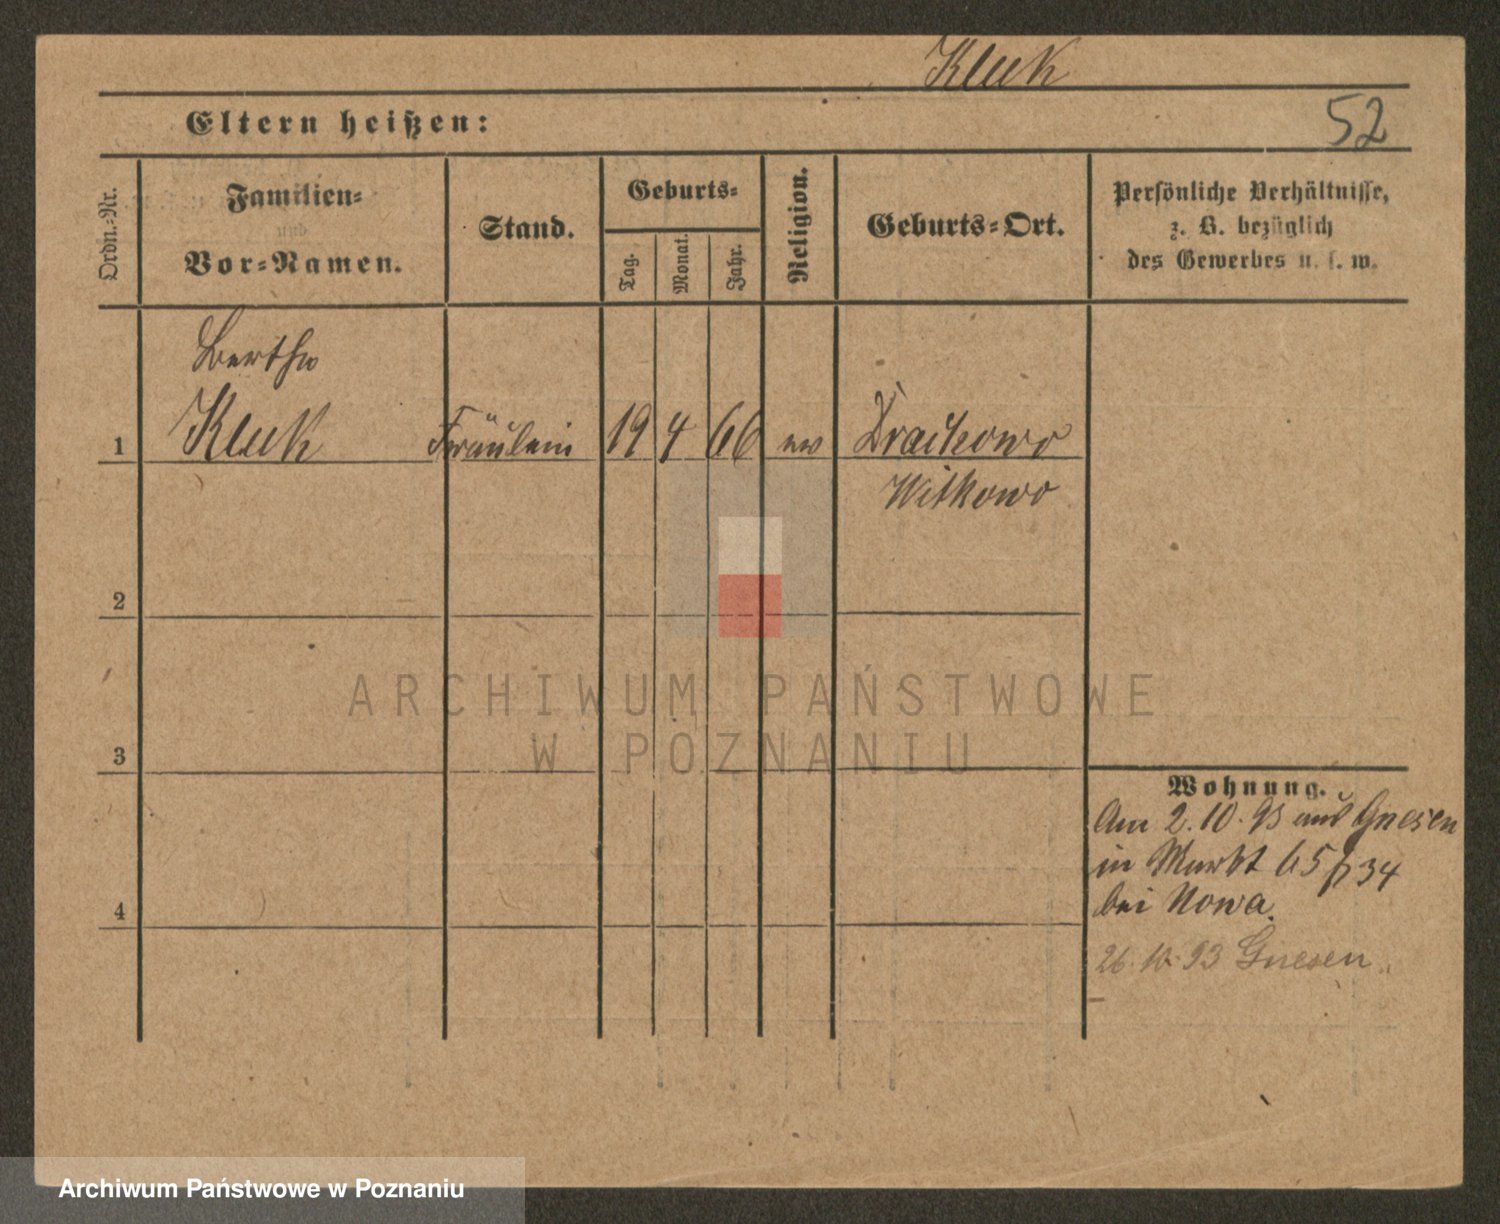 Kluk
52
Eltern heißen:
Ordn.-Nr.
Familien-
und
Vor-Namen.
Stand.
Geburts-
Tag.
Monat.
Jahr.
Religion.
Geburts-Ort.
Persönliche Verhältnisse,
z. B. bezüglich
des Gewerbes u. s. w.
Bertha
1 Kluk Fräulein 19 4 66 ev
Witkowo
2
3
4
ARCHIWUM PAŃSTWOWE
W POZNANIU
Wohnung.
Am 2.10.93 aus Gnesen
in Markt 65 34
bei Nowa.
26.10.93 Gnesen
Archiwum Państwowe w Poznaniu